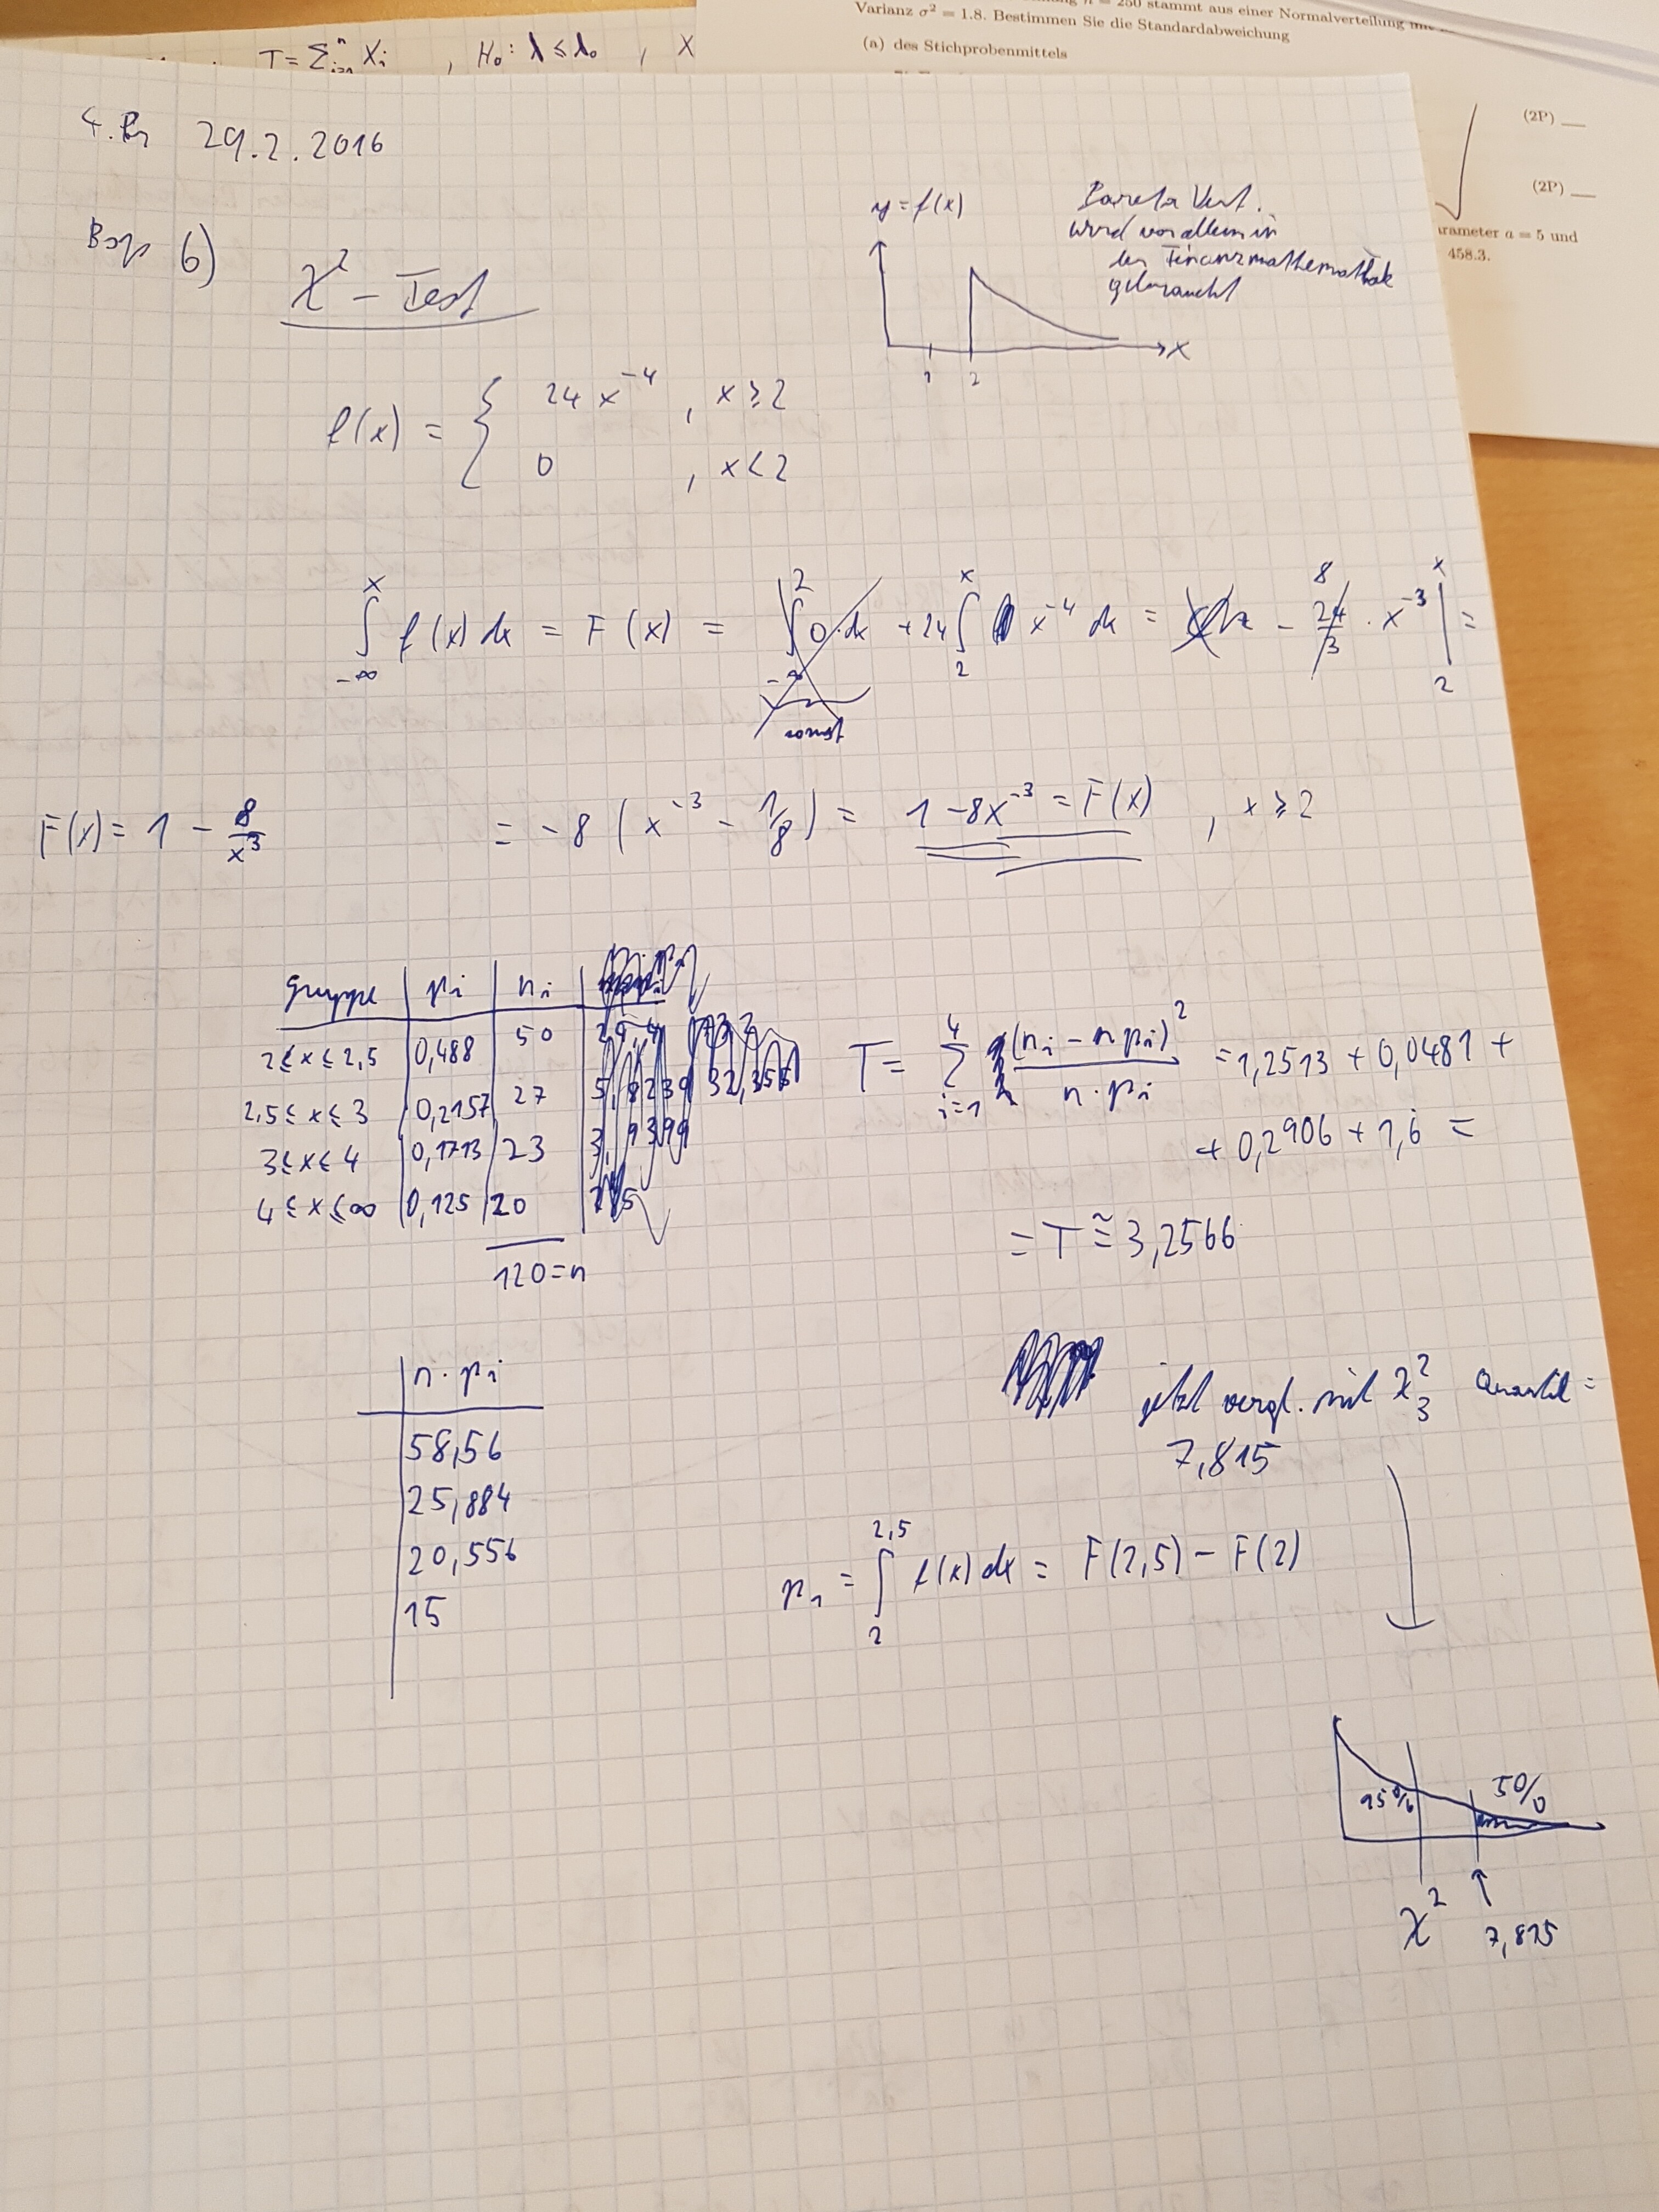 250 stammt aus einer Normalverteilung
Varianz σ² = 1.8. Bestimmen Sie die Standardabweichung
(a) des Stichprobenmittels
(2P)
(2P)
rameter a = 5 und
458.3.
T = Σ_{i=1}^n X_i , H₀: λ ≤ λ₀ , X
29.2.2016
Bsp 6)
χ² - Test
y = f(x)
Vert.
wird vor allem in
der Finanzmathematik
gebraucht
x
1 2
f(x) = { 24 x⁻⁴ , x ≥ 2
0 , x < 2
∫_{-∞}^x f(x) dx = F(x) = ∫_{-∞}^2 0·dx + 24 ∫_2^x x⁻⁴ dx = - 24/3 8 · x⁻³ |_2^x =
const
F(x) = 1 - 8/x³
= -8 (x⁻³ - 1/8) = 1 - 8x⁻³ = F(x) , x ≥ 2
gruppe | p_i | n_i
2 ≤ x ≤ 2,5 | 0,488 | 50
2,5 ≤ x ≤ 3 | 0,2157 | 27
3 ≤ x ≤ 4 | 0,1713 | 23
4 ≤ x ≤ ∞ | 0,125 | 20
120 = n
T = Σ_{i=1}^4 (n_i - n p_i)² / n · p_i = 1,2513 + 0,0481 +
+ 0,2906 + 1,6 =
= T ≅ 3,2566
n · p_i
58,56
25,884
20,556
15
jetzt vergl. mit χ²₃ Quantil =
7,815
p₁ = ∫_2^{2,5} f(x) dx = F(2,5) - F(2)
95% 5%
χ²
7,815